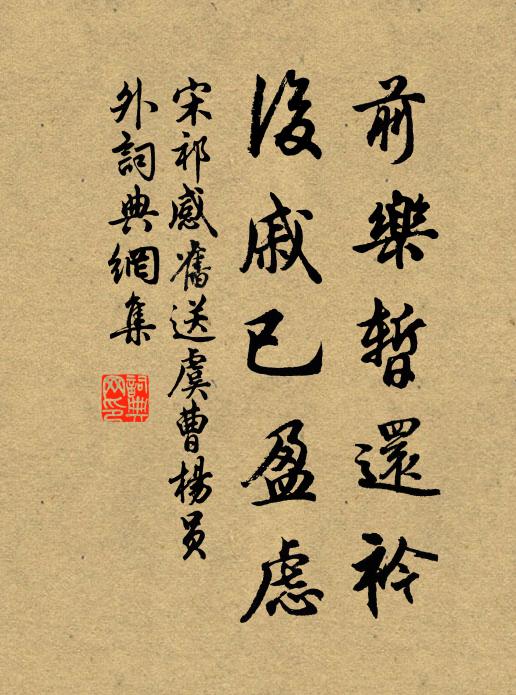 前樂暫還衿
後戚已盈慮
宋祁感舊送虞曹楊員
外詞典網集
詞典
网印